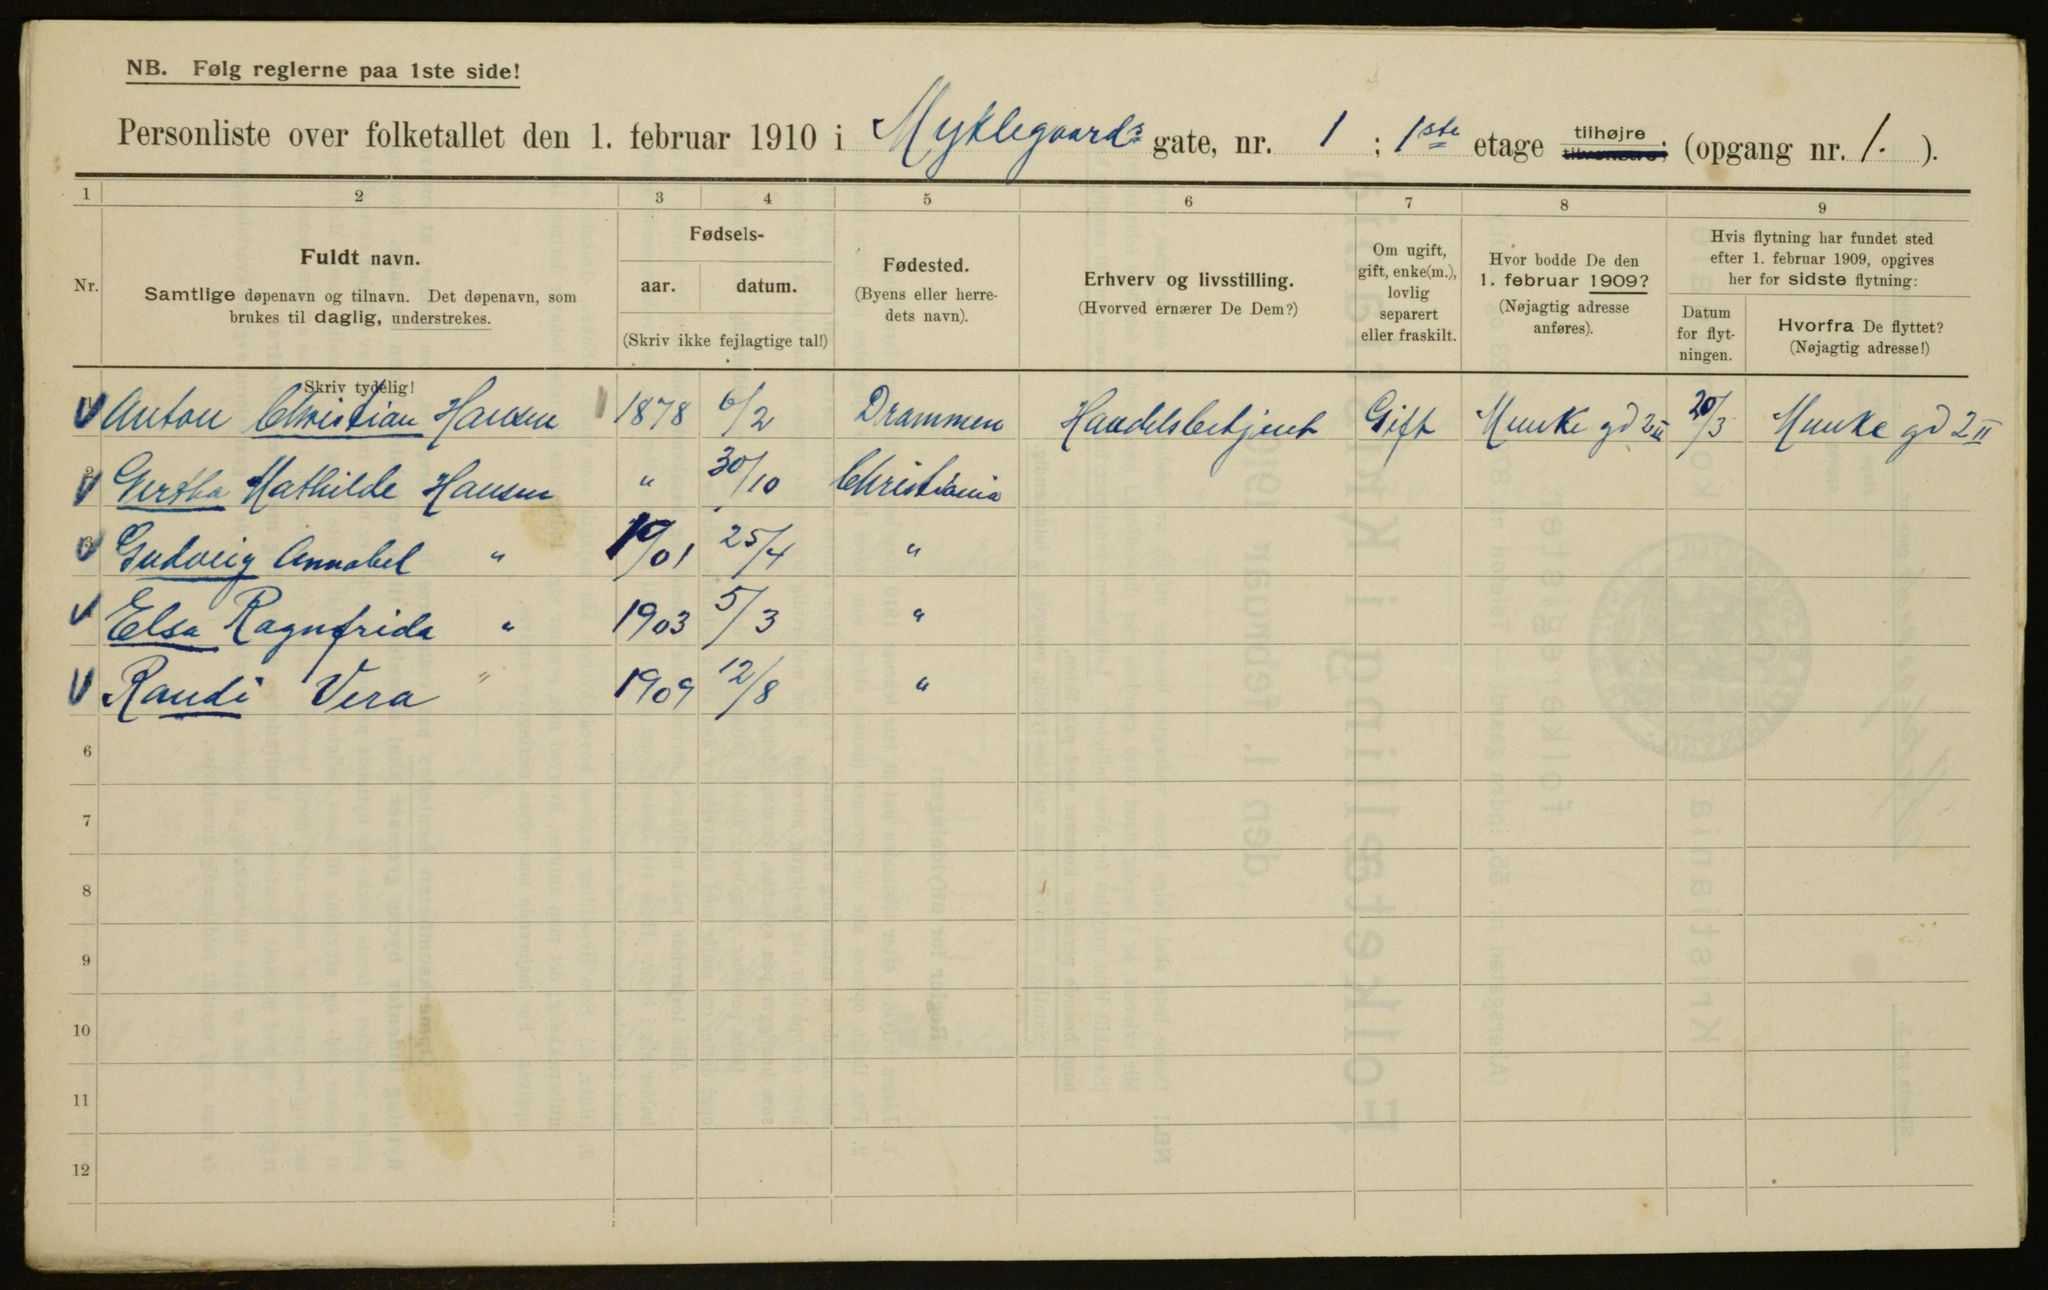 NB. Følg reglerne paa 1ste side!
Personliste over folketallet den 1. februar 1910 i Myklegaards gate, nr. 1 ; 1ste etage tilhøjre tilvenstre; (opgang nr. 1. ).
1 2 3 4 5 6 7 8 9
Nr.
Fuldt navn.
Samtlige døpenavn og tilnavn. Det døpenavn, som
brukes til daglig, understrekes.
Fødsels-
aar. datum.
(Skriv ikke fejlagtige tal!)
Fødested.
(Byens eller herre-
dets navn).
Erhverv og livsstilling.
(Hvorved ernærer De Dem?)
Om ugift,
gift, enke(m.),
lovlig
separert
eller fraskilt.
Hvor bodde De den
1. februar 1909?
(Nøjagtig adresse
anføres).
Hvis flytning har fundet sted
efter 1. februar 1909, opgives
her for sidste flytning:
Datum
for flyt-
ningen.
Hvorfra De flyttet?
(Nøjagtig adresse!)
Skriv tydelig!
Anton Christian Hansen 1878 6/2 Drammen Handelsbetjent Gift Munke gd 2 II 20/3 Munke gd 2 II
2 Gertha Mathilde Hansen " 30/10 Christiania
3 Gudveig Annabel " 19/01 25/4 "
Elsa Ragnfrida " 1903 5/3 "
Randi Vera " 1909 12/8 "
6
7
8
9
10
11
12